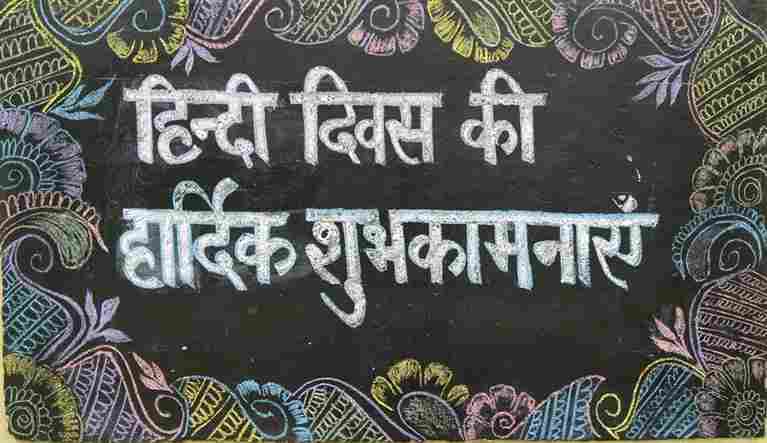 हिन्दी दिवस की
हार्दिक शुभकामनाएं